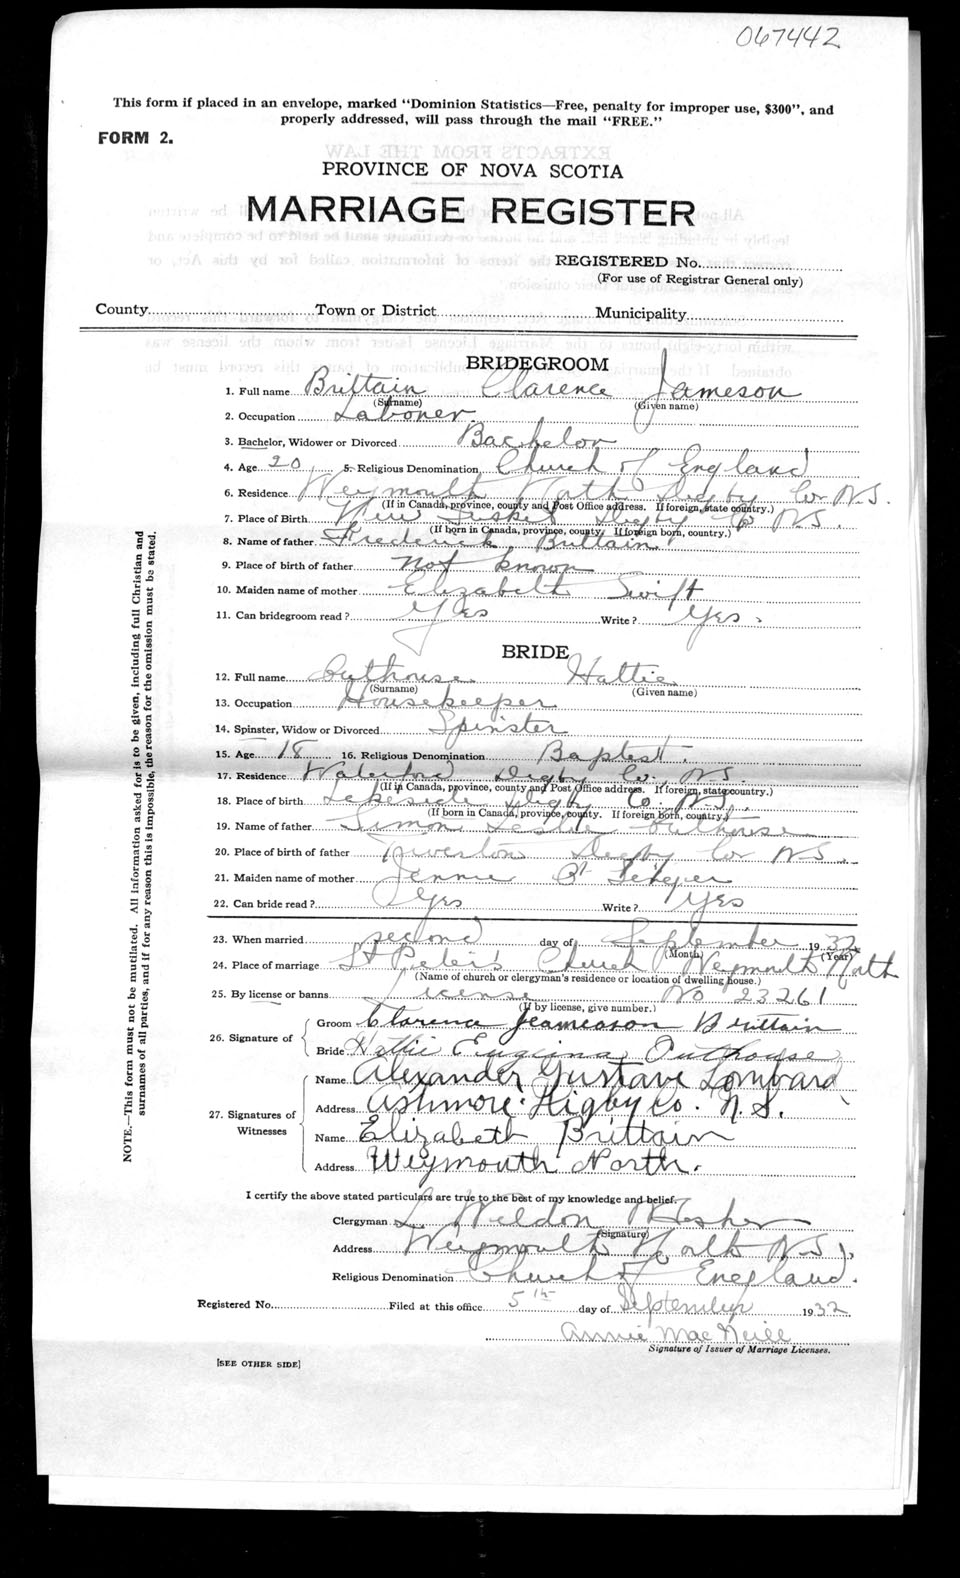 067442
This form if placed in an envelope, marked "Dominion Statistics—Free, penalty for improper use, $300", and
properly addressed, will pass through the mail "FREE."
FORM 2.
PROVINCE OF NOVA SCOTIA
MARRIAGE REGISTER
REGISTERED No.
(For use of Registrar General only)
County Town or District Municipality
BRIDEGROOM
1. Full name Brittain Clarence Jameson
(Surname) (Given name)
2. Occupation Laborer.
3. Bachelor, Widower or Divorced Bachelor
4. Age 20 5. Religious Denomination Church of England
6. Residence Weymouth North Digby Co. N.S.
(If in Canada, province, county and Post Office address. If foreign, state country.)
7. Place of Birth New Tusket Digby Co N.S.
(If born in Canada, province, county. If foreign born, country.)
8. Name of father Frederick Brittain
9. Place of birth of father not known
10. Maiden name of mother Elizabeth Swift
11. Can bridegroom read? Yes Write? Yes.
BRIDE
12. Full name Outhouse Hattie
(Surname) (Given name)
13. Occupation Housekeeper
14. Spinster, Widow or Divorced Spinster
15. Age 18 16. Religious Denomination Baptist.
17. Residence Waterford Digby Co. N.S.
(If in Canada, province, county and Post Office address. If foreign, state country.)
18. Place of birth Lakeside Digby Co N.S.
(If born in Canada, province, county. If foreign born, country.)
19. Name of father Simon Leslie Outhouse
20. Place of birth of father Tiverton Digby Co N.S.
21. Maiden name of mother Jennie B.
22. Can bride read? Yes Write? Yes
23. When married second day of September 1932
(Month) (Year)
24. Place of marriage St Peter's Church Weymouth North
(Name of church or clergyman's residence or location of dwelling house.)
25. By license or banns License No 23261
(If by license, give number.)
26. Signature of Groom Clarence Jeameason Brittain
Bride Hattie Eugina Outhouse
27. Signatures of Witnesses Name Alexander Gustave Lombard
Address Ashmore. Higby Co. N.S.
Name Elizabeth Brittain
Address Weymouth North.
I certify the above stated particulars are true to the best of my knowledge and belief.
Clergyman L. Weldon
(Signature)
Address Weymouth North N.S.
Religious Denomination Church of England.
Registered No. Filed at this office 5th day of September 1932
Annie MacNeill
Signature of Issuer of Marriage Licenses.
[SEE OTHER SIDE]
NOTE.—This form must not be mutilated. All information asked for is to be given, including full Christian and
surnames of all parties, and if for any reason this is impossible, the reason for the omission must be stated.